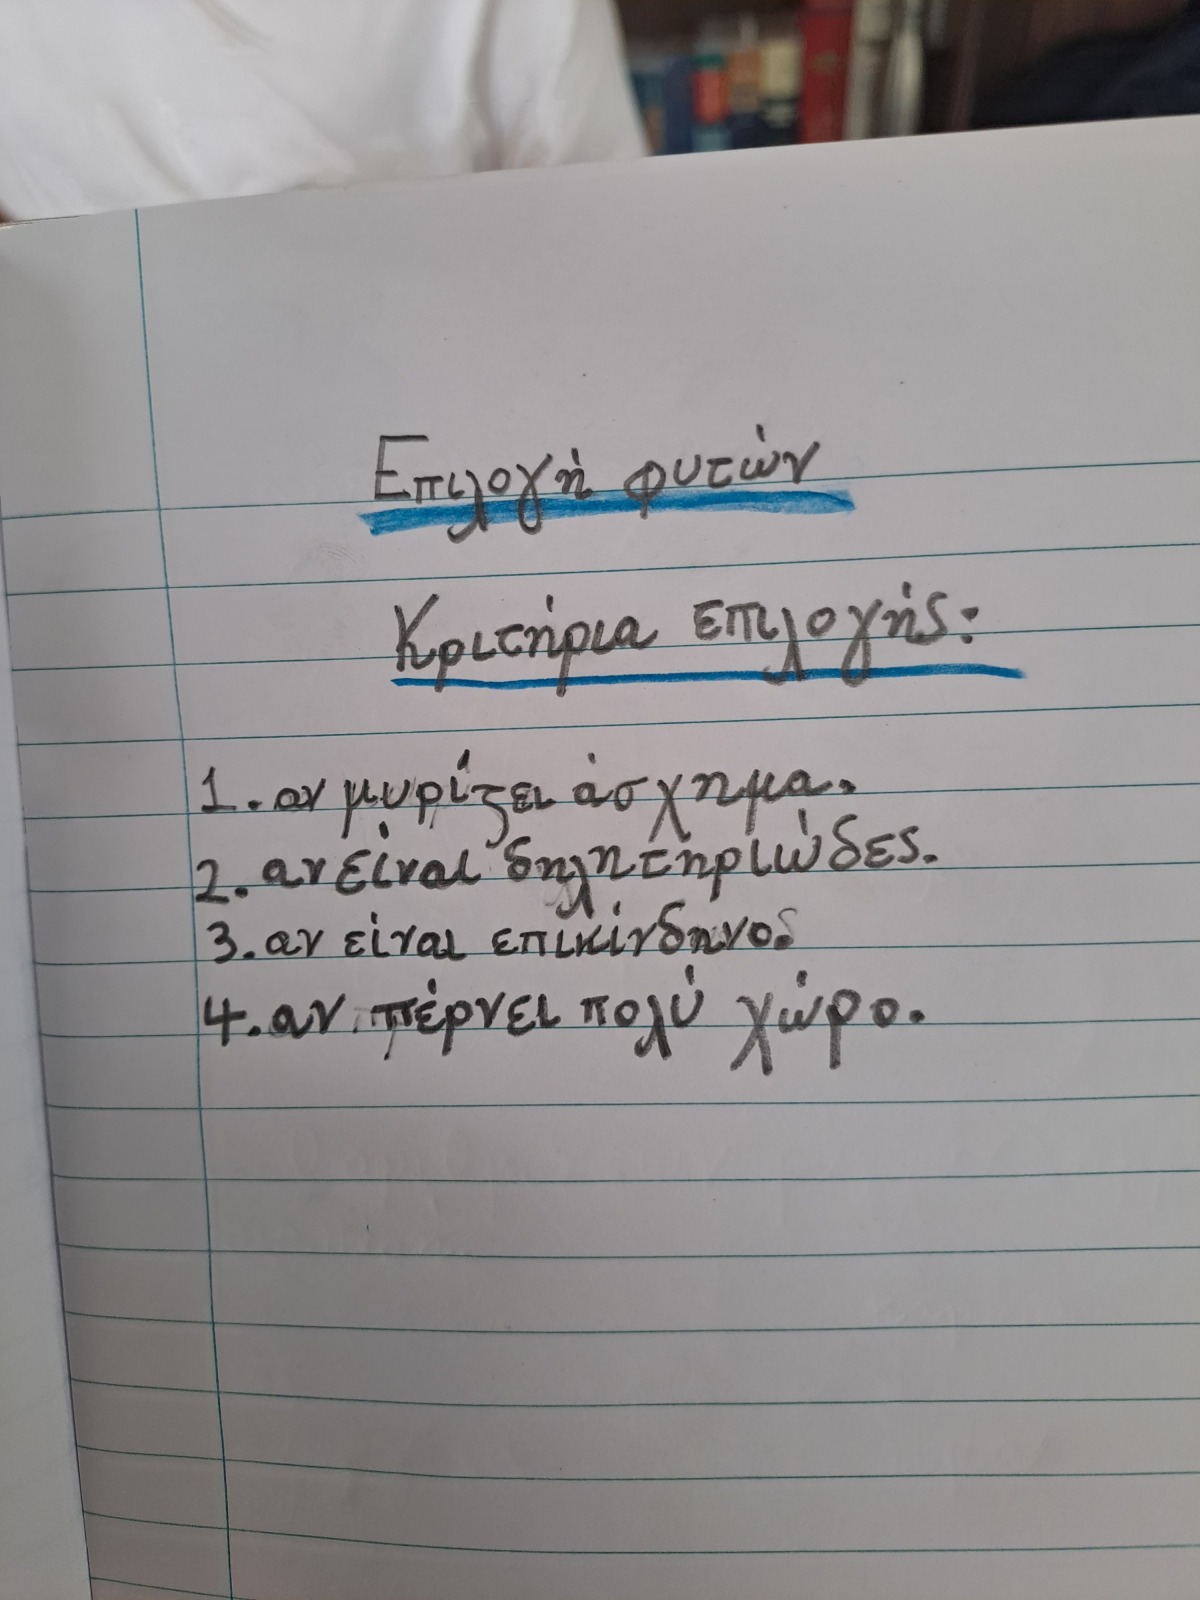 Επιλογή φυτών
Κριτήρια επιλογής:
1. αν μυρίζει άσχημα.
2. αν είναι δηλητηριώδες.
3. αν είναι επικίνδηνο.
4. αν πέρνει πολύ χώρο.